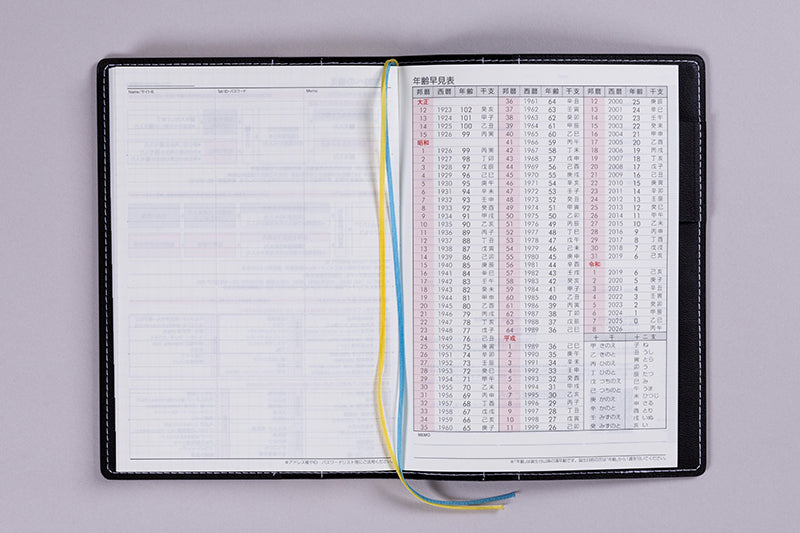 Name/サイト名 Tel/ID・パスワード Memo
年齢早見表
邦暦 西暦 年齢 干支
大正
12 1923 102 癸亥
13 1924 101 甲子
14 1925 100 乙丑
15 1926 99 丙寅
昭和
1 1926 99 丙寅
2 1927 98 丁卯
3 1928 97 戊辰
4 1929 96 己巳
5 1930 95 庚午
6 1931 94 辛未
7 1932 93 壬申
8 1933 92 癸酉
9 1934 91 甲戌
10 1935 90 乙亥
11 1936 89 丙子
12 1937 88 丁丑
13 1938 87 戊寅
14 1939 86 己卯
15 1940 85 庚辰
16 1941 84 辛巳
17 1942 83 壬午
18 1943 82 癸未
19 1944 81 甲申
20 1945 80 乙酉
21 1946 79 丙戌
22 1947 78 丁亥
23 1948 77 戊子
24 1949 76 己丑
25 1950 75 庚寅
26 1951 74 辛卯
27 1952 73 壬辰
28 1953 72 癸巳
29 1954 71 甲午
30 1955 70 乙未
31 1956 69 丙申
32 1957 68 丁酉
33 1958 67 戊戌
34 1959 66 己亥
35 1960 65 庚子
邦暦 西暦 年齢 干支
36 1961 64 辛丑
37 1962 63 壬寅
38 1963 62 癸卯
39 1964 61 甲辰
40 1965 60 乙巳
41 1966 59 丙午
42 1967 58 丁未
43 1968 57 戊申
44 1969 56 己酉
45 1970 55 庚戌
46 1971 54 辛亥
47 1972 53 壬子
48 1973 52 癸丑
49 1974 51 甲寅
50 1975 50 乙卯
51 1976 49 丙辰
52 1977 48 丁巳
53 1978 47 戊午
54 1979 46 己未
55 1980 45 庚申
56 1981 44 辛酉
57 1982 43 壬戌
58 1983 42 癸亥
59 1984 41 甲子
60 1985 40 乙丑
61 1986 39 丙寅
62 1987 38 丁卯
63 1988 37 戊辰
64 1989 36 己巳
平成
1 1989 36 己巳
2 1990 35 庚午
3 1991 34 辛未
4 1992 33 壬申
5 1993 32 癸酉
6 1994 31 甲戌
7 1995 30 乙亥
8 1996 29 丙子
9 1997 28 丁丑
10 1998 27 戊寅
11 1999 26 己卯
邦暦 西暦 年齢 干支
12 2000 25 庚辰
13 2001 24 辛巳
14 2002 23 壬午
15 2003 22 癸未
16 2004 21 甲申
17 2005 20 乙酉
18 2006 19 丙戌
19 2007 18 丁亥
20 2008 17 戊子
21 2009 16 己丑
22 2010 15 庚寅
23 2011 14 辛卯
24 2012 13 壬辰
25 2013 12 癸巳
26 2014 11 甲午
27 2015 10 乙未
28 2016 9 丙申
29 2017 8 丁酉
30 2018 7 戊戌
31 2019 6 己亥
令和
1 2019 6 己亥
2 2020 5 庚子
3 2021 4 辛丑
4 2022 3 壬寅
5 2023 2 癸卯
6 2024 1 甲辰
7 2025 0 乙巳
8 2026 丙午
十干
甲 きのえ
乙 きのと
丙 ひのえ
丁 ひのと
戊 つちのえ
己 つちのと
庚 かのえ
辛 かのと
壬 みずのえ
癸 みずのと
十二支
子 ね
丑 うし
寅 とら
卯 う
辰 たつ
巳 み
午 うま
未 ひつじ
申 さる
酉 とり
戌 いぬ
亥 い
MEMO